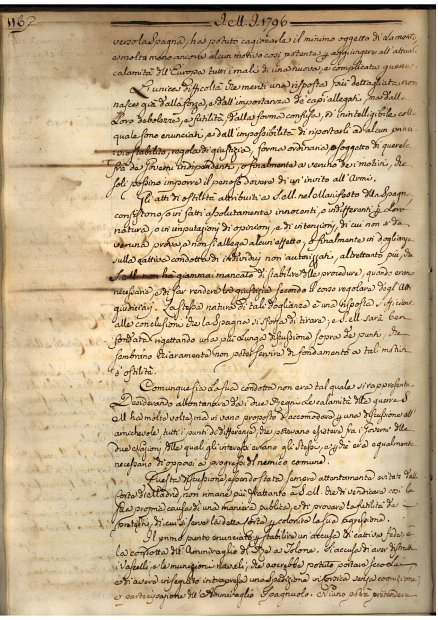 116
J. M. J. 1796
verso la Spagna, ha potuto cagionarle il minimo oggetto di lamento,
e molto meno ancora alcun motivo così potente p aggiungere all' attuali
calamità dell' Europa tutti i mali di una nuova, e complicata guerra.
L'unica difficoltà che meriti una risposta più dettagliata non
nasce già dalla forza, e dall' importanza de' capi allegati, ma dalla
loro debolezza, e futilità, dalla forma confusa, ed inintelligibile colla
quale sono enunciati, e dall' impossibilità di riportarli ad alcun princi
pio stabilito, regola di giustizia, forma ordinaria, o soggetto di querele
fra de' Governi indipendenti, o finalmente a veruno de' motivi, che
soli possino imporre il penoso dovere di un' invito all' Armi.
Gli atti di ostilità attribuiti a S. M. nel Manifesto della Spagna
consistono o in fatti assolutamente innocenti, e indifferenti p loro
natura, o in imputazioni di opinioni, e di intenzioni, di cui non si dà
veruna prova, e non si allega alcun effetto, o finalmente in doglianze
sulla cattiva condotta di individui non autorizzati, al trattato più, che
S. M. non ha giammai mancato di stabilire delle procedure, quando erano
necessarie, e di far rendere la giustizia secondo il corso regolare degl' Atti
giudiciarj. La stessa natura di tali doglianze è una risposta sufficiente
alle conclusioni che la Spagna si sforza di tirare, e S. M. sarà ben
fondata rigettando una più lunga discussione sopra de' punti, che
sembrano chiaramente non poter servire di fondamento a tali motivi
d' ostilità.
Comunque sia la sua condotta non era tal quale si rappresenta.
Desiderando allontanare da i due Regni le calamità della guerra S.
M. ha molte volte, ma in vano proposto di accomodare p una discussione all'
amichevole tutti i punti di differenza, che potevano esistere fra i Governi delle
due Nazioni, delle quali gl' interessi erano gli stessi, e p che era egualmente
necessario di opporsi a' progressi del nemico comune.
Questa discussione essendo stata sempre attentamente evitata dalla
Corte di Madrid, non rimane più frattanto a S. M. che di vendicare così la
sua propria causa di una maniera publica, e di provare la futilità de'
pretesti, di cui si serve la detta Corte p colorire la sua aggressione.
Il primo punto enunciato p stabilire un' accusa di cattiva fede, è
la condotta dell' Ammiraglio di Hood a Tolone. Si accusa di aver distrutti
i Vascelli, e le munizioni navali, che avrebbe potuto portare seco lui,
e di avere in seguito intrapresa una Spedizione in Corsica senza cognizione,
e partecipazione dell' Ammiraglio Spagnuolo. Niuno potrà pretendere